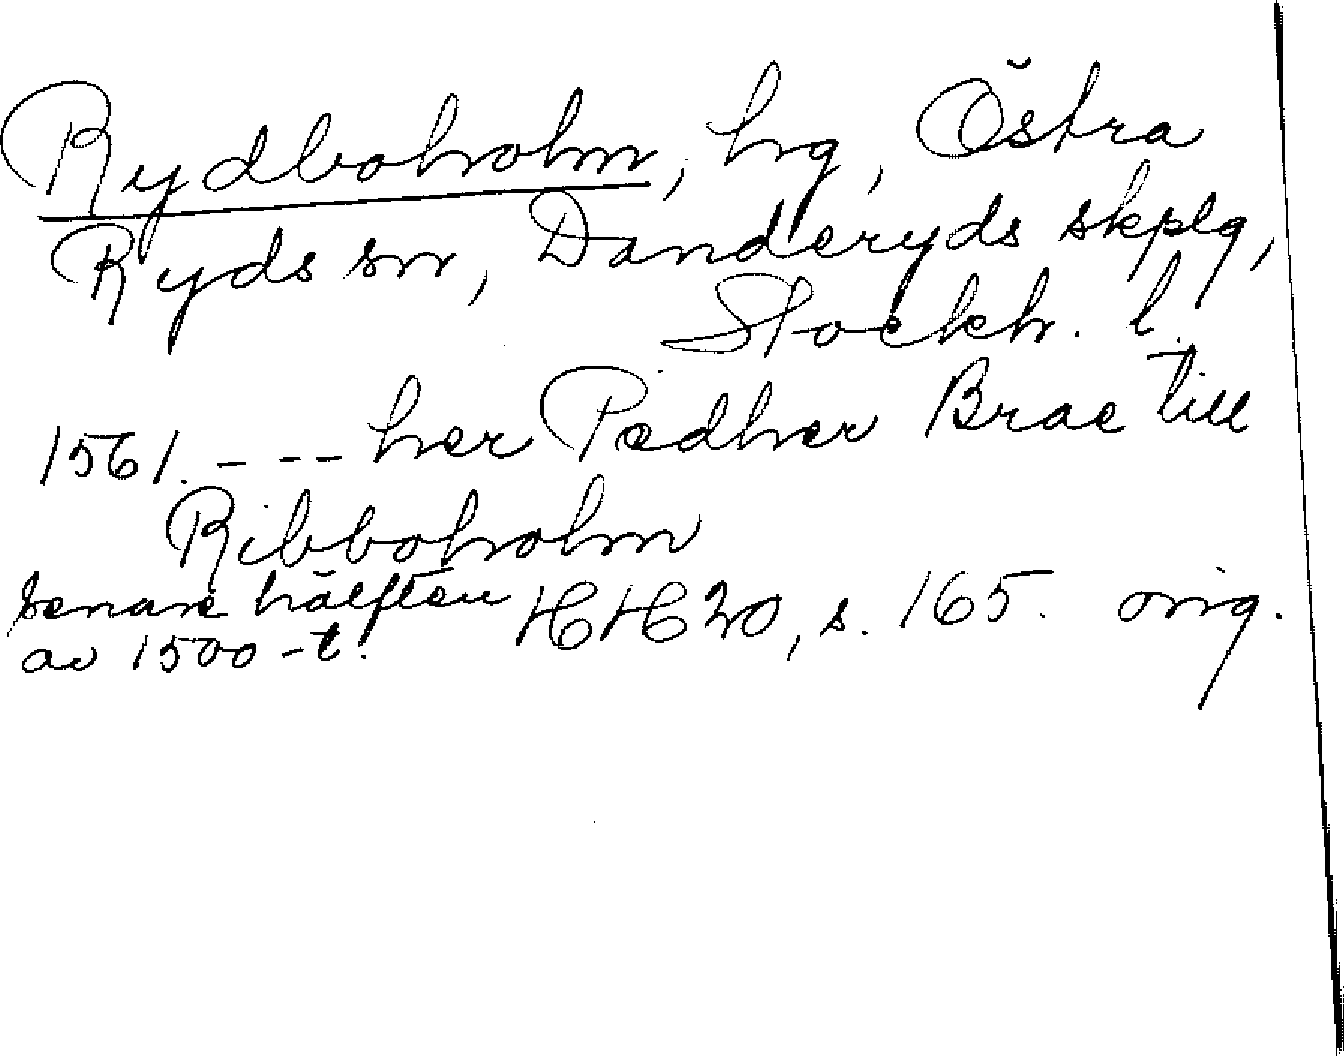 Rydboholm, hg, Östra
Ryds sn, Danderyds skplg,
Stockh. l.
1561. - - - her Pedher Brae till
Ribboholm
senare hälften HH20, s. 165. orig.
av 1500-t.